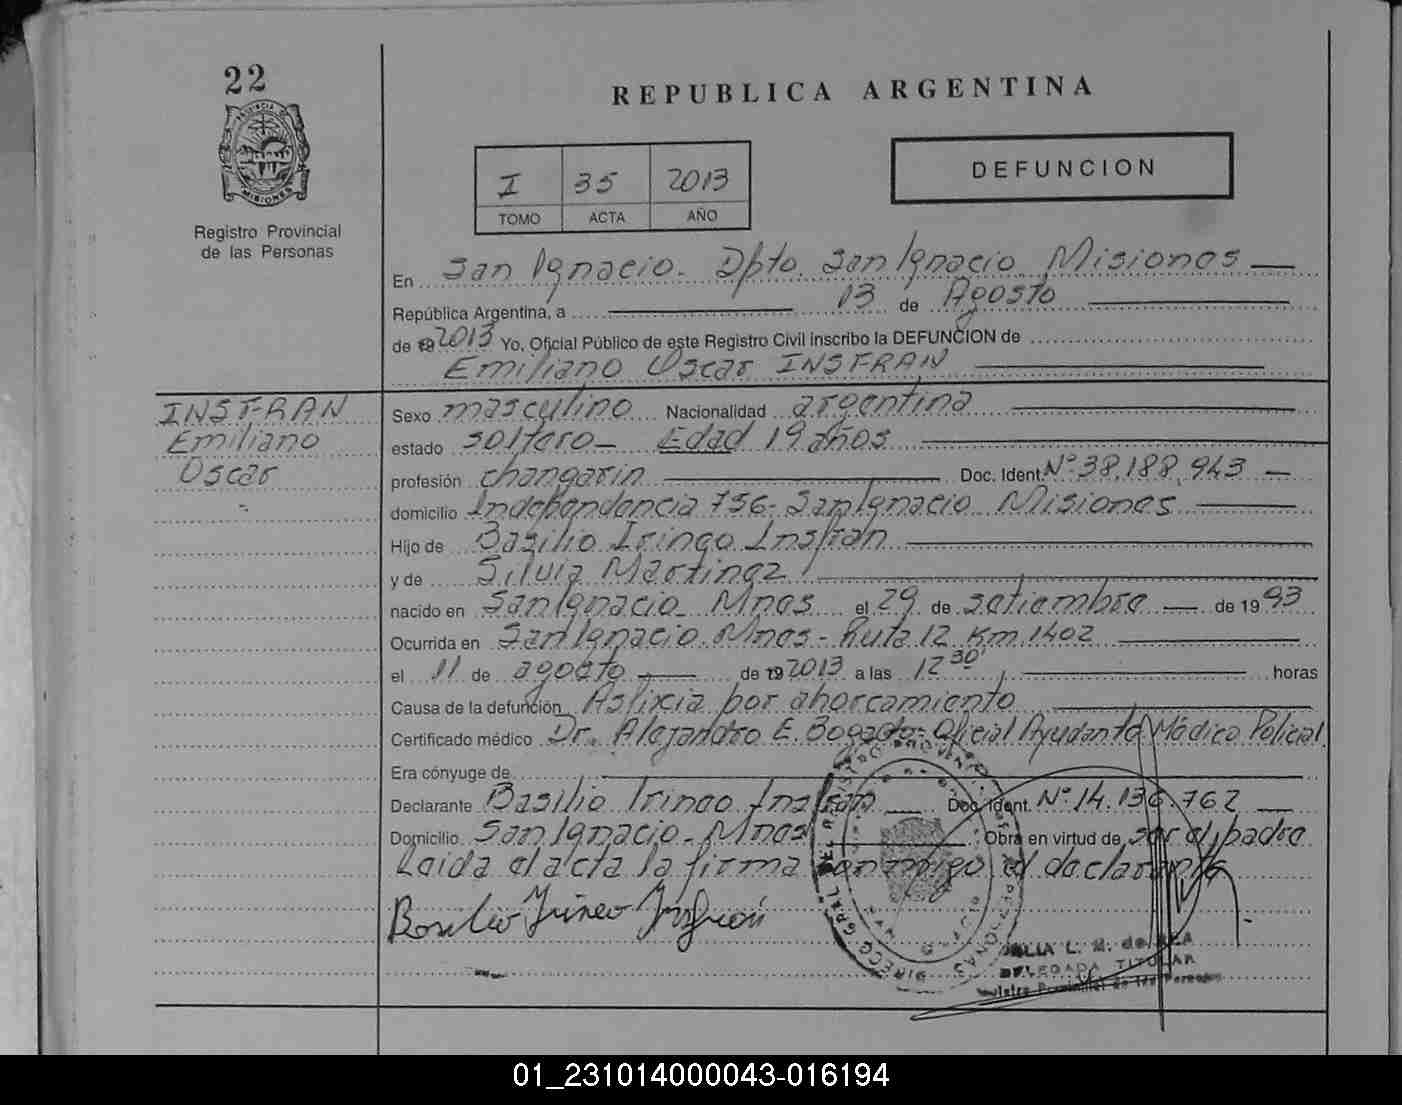 22
PROVINCIA DE
MISIONES
Registro Provincial
de las Personas
REPUBLICA ARGENTINA
I 35 2013
TOMO ACTA AÑO
DEFUNCION
En San Ignacio. Dpto. San Ignacio Misiones
República Argentina, a 13 de Agosto
de 2013 Yo, Oficial Público de este Registro Civil inscribo la DEFUNCION de
Emiliano Oscar INSFRAN
INSFRAN
Emiliano
Oscar
Sexo masculino Nacionalidad argentina
estado soltero - Edad 19 años
profesión changarin Doc. Ident. Nº 38.188.943
domicilio Independencia 756- San Ignacio Misiones
Hijo de Basilio Irineo Insfran
y de Silvia Martinez
nacido en San Ignacio- Mnes el 29 de setiembre de 1993
Ocurrida en San Ignacio. Mnes - Ruta 12 Km 1402
el 11 de agosto de 19 2013 a las 12 30' horas
Causa de la defunción Asfixia por ahorcamiento
Certificado médico Dr. Alejandro E. Bogado- Oficial Ayudante Médico Policial
Era cónyuge de
Declarante Basilio Irineo Insfran Doc. Ident. Nº 14.136.762
Domicilio San Ignacio- Mnes Obra en virtud de ser el padre
Leida el acta la firma conmigo el declarante
Basilio Irineo Insfrán
L. M. de
DELEGADA TITULAR
Registro Provincial de las Personas
01_231014000043-016194